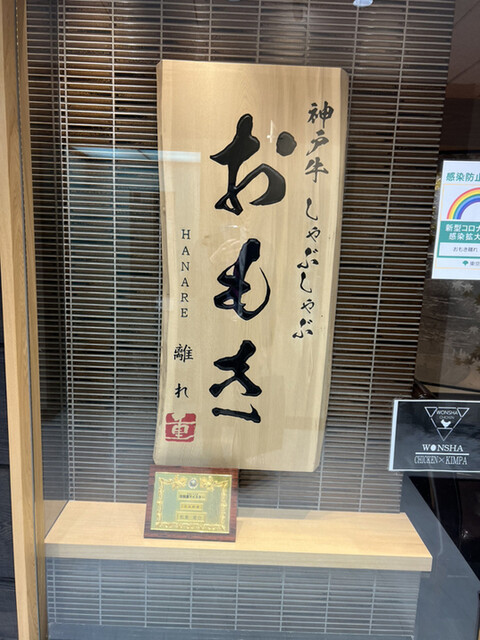 神戸牛しゃぶしゃぶ
おもき
HANARE
離れ
重
感染防止
新型コロナ
感染拡大
おもき離れ
WONSHA
CHICKEN
WONSHA
CHICKEN×KIMPA